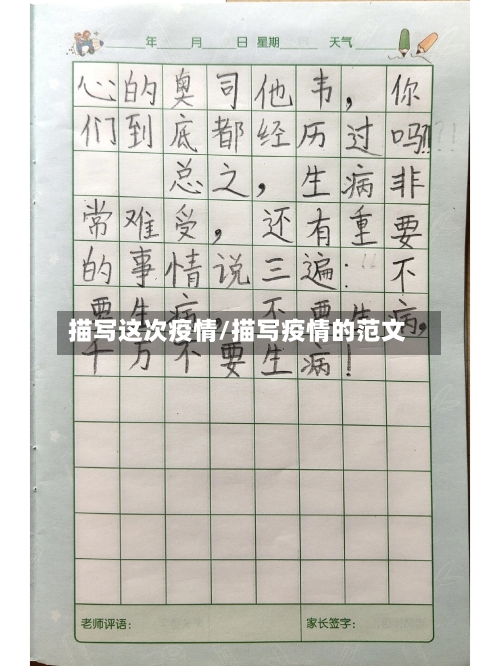 年 月 日 星期 天气
心的奥司他韦，你
们到底都经历过吗!!?!
总之，生病非
常难受，还有重要
的事情说三遍：“不
要生病，不要生病，
描写这次疫情/描写疫情的范文
千万不要生病！
老师评语： 家长签字：